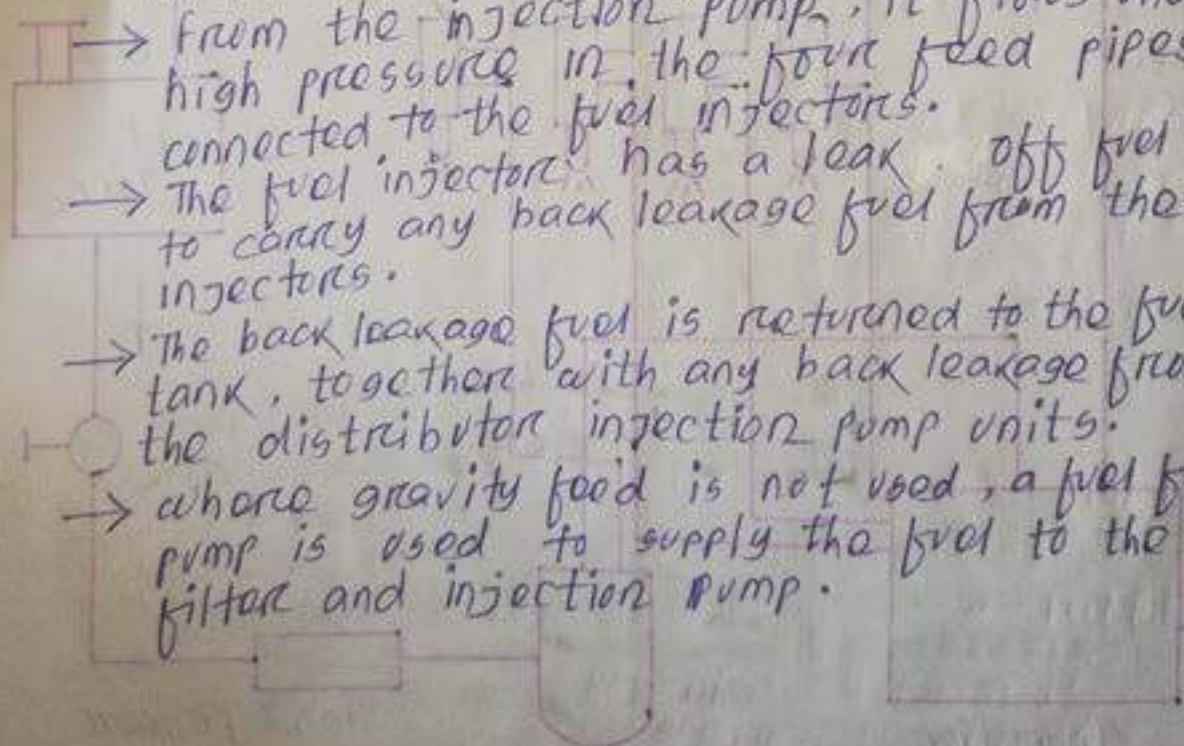 → From the injection pump, it flows
high pressure in the four feed pipes
connected to the fuel injectors.
→ The fuel injector has a leak off fuel
to carry any back leakage fuel from the
injectors.
→ The back leakage fuel is returned to the
tank, together with any back leakage
the distributor injection pump units.
→ where gravity feed is not used, a fuel
pump is used to supply the fuel to the
filter and injection pump.